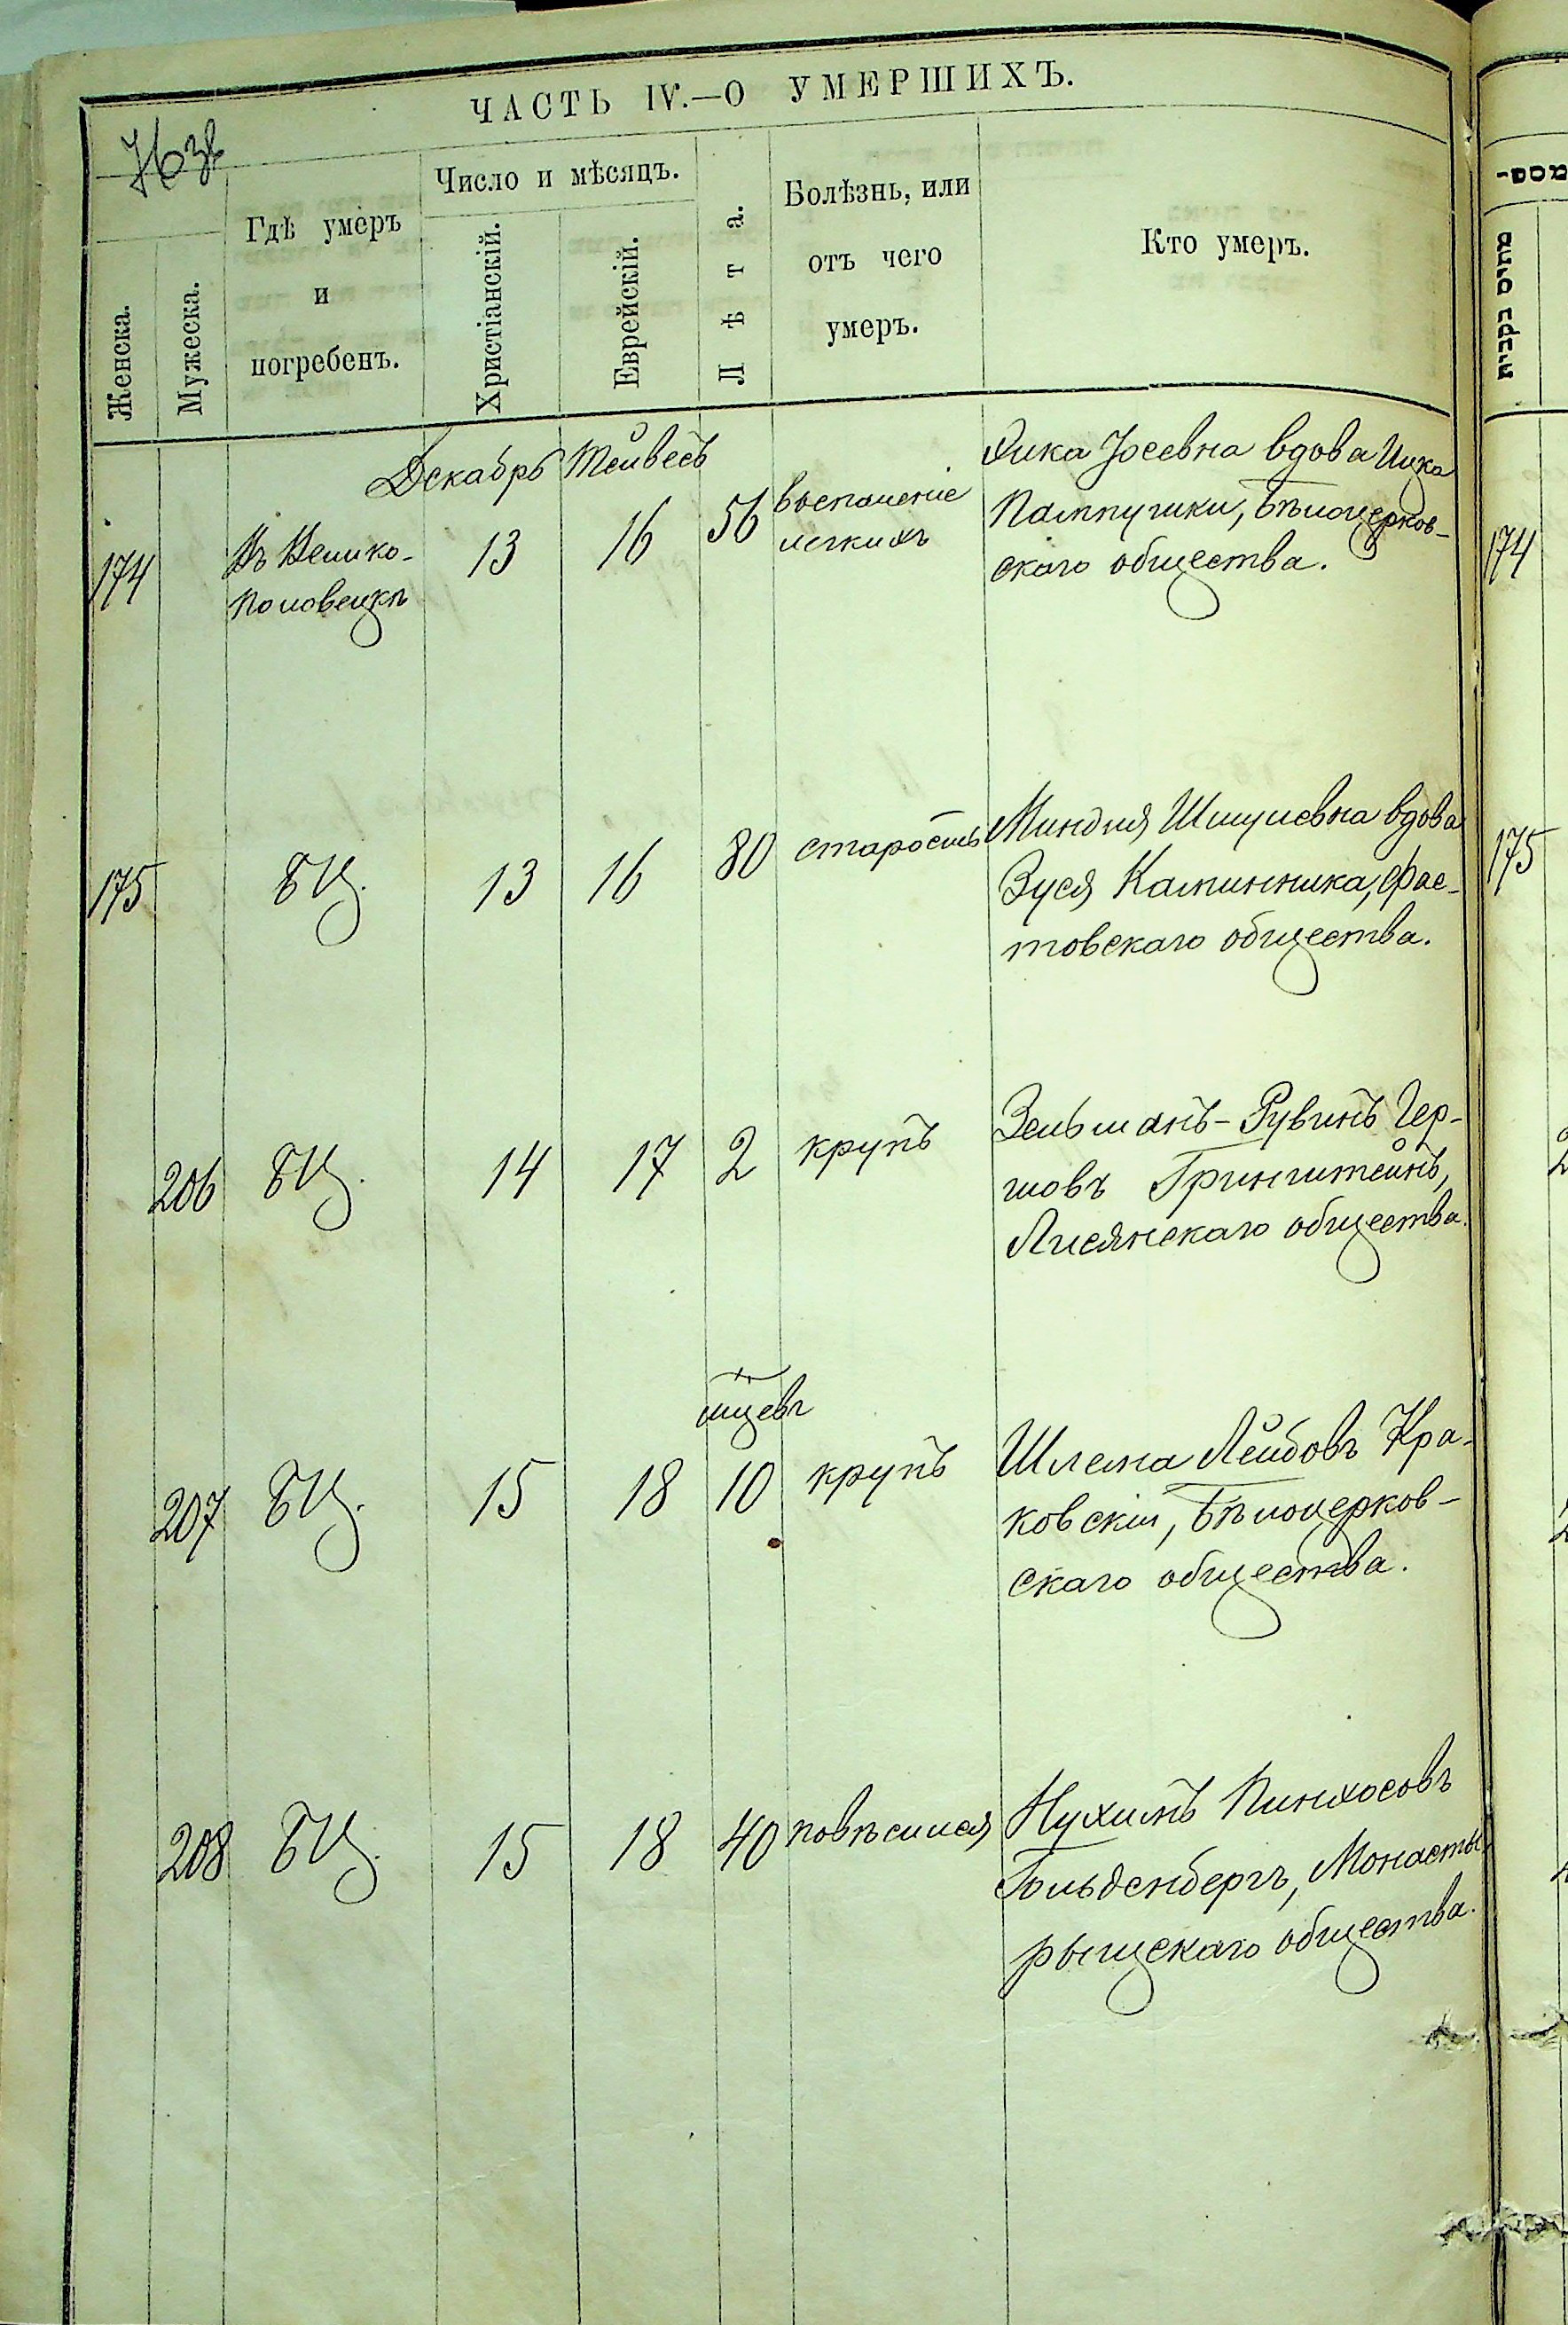 ЧАСТЬ IV.—О УМЕРШИХЪ.
Женска.
Мужеска.
Гдѣ умеръ
и
погребенъ.
Число и мѣсяцъ.
Христіанскій.
Еврейскій.
Лѣта.
Болѣзнь, или
отъ чего
умеръ.
Кто умеръ.
Декабрь Тейвесъ
174 Въ Велико- 13 16 56 воспаленіе Іосевна вдова Ицка
Половецкѣ легкихъ Пампушки, Бѣлоцерков-
скаго общества.
175 БЦ. 13 16 80 старость Миндля Шмулевна вдова
Зуся Калинника, Фас-
товскаго общества.
206 БЦ. 14 17 2 крупъ Зельманъ-Рувинъ Гер-
шовъ Гринштейнъ,
Лисянскаго общества.
мцевъ
207 БЦ. 15 18 10 крупъ Шлема Лейбовъ Кра-
ковскій, Бѣлоцерков-
скаго общества.
208 БЦ. 15 18 40 повѣсился Нухимъ Пинхосовъ
Гольденбергъ, Монасты-
рыщскаго общества.
מתים נקבות
174
175